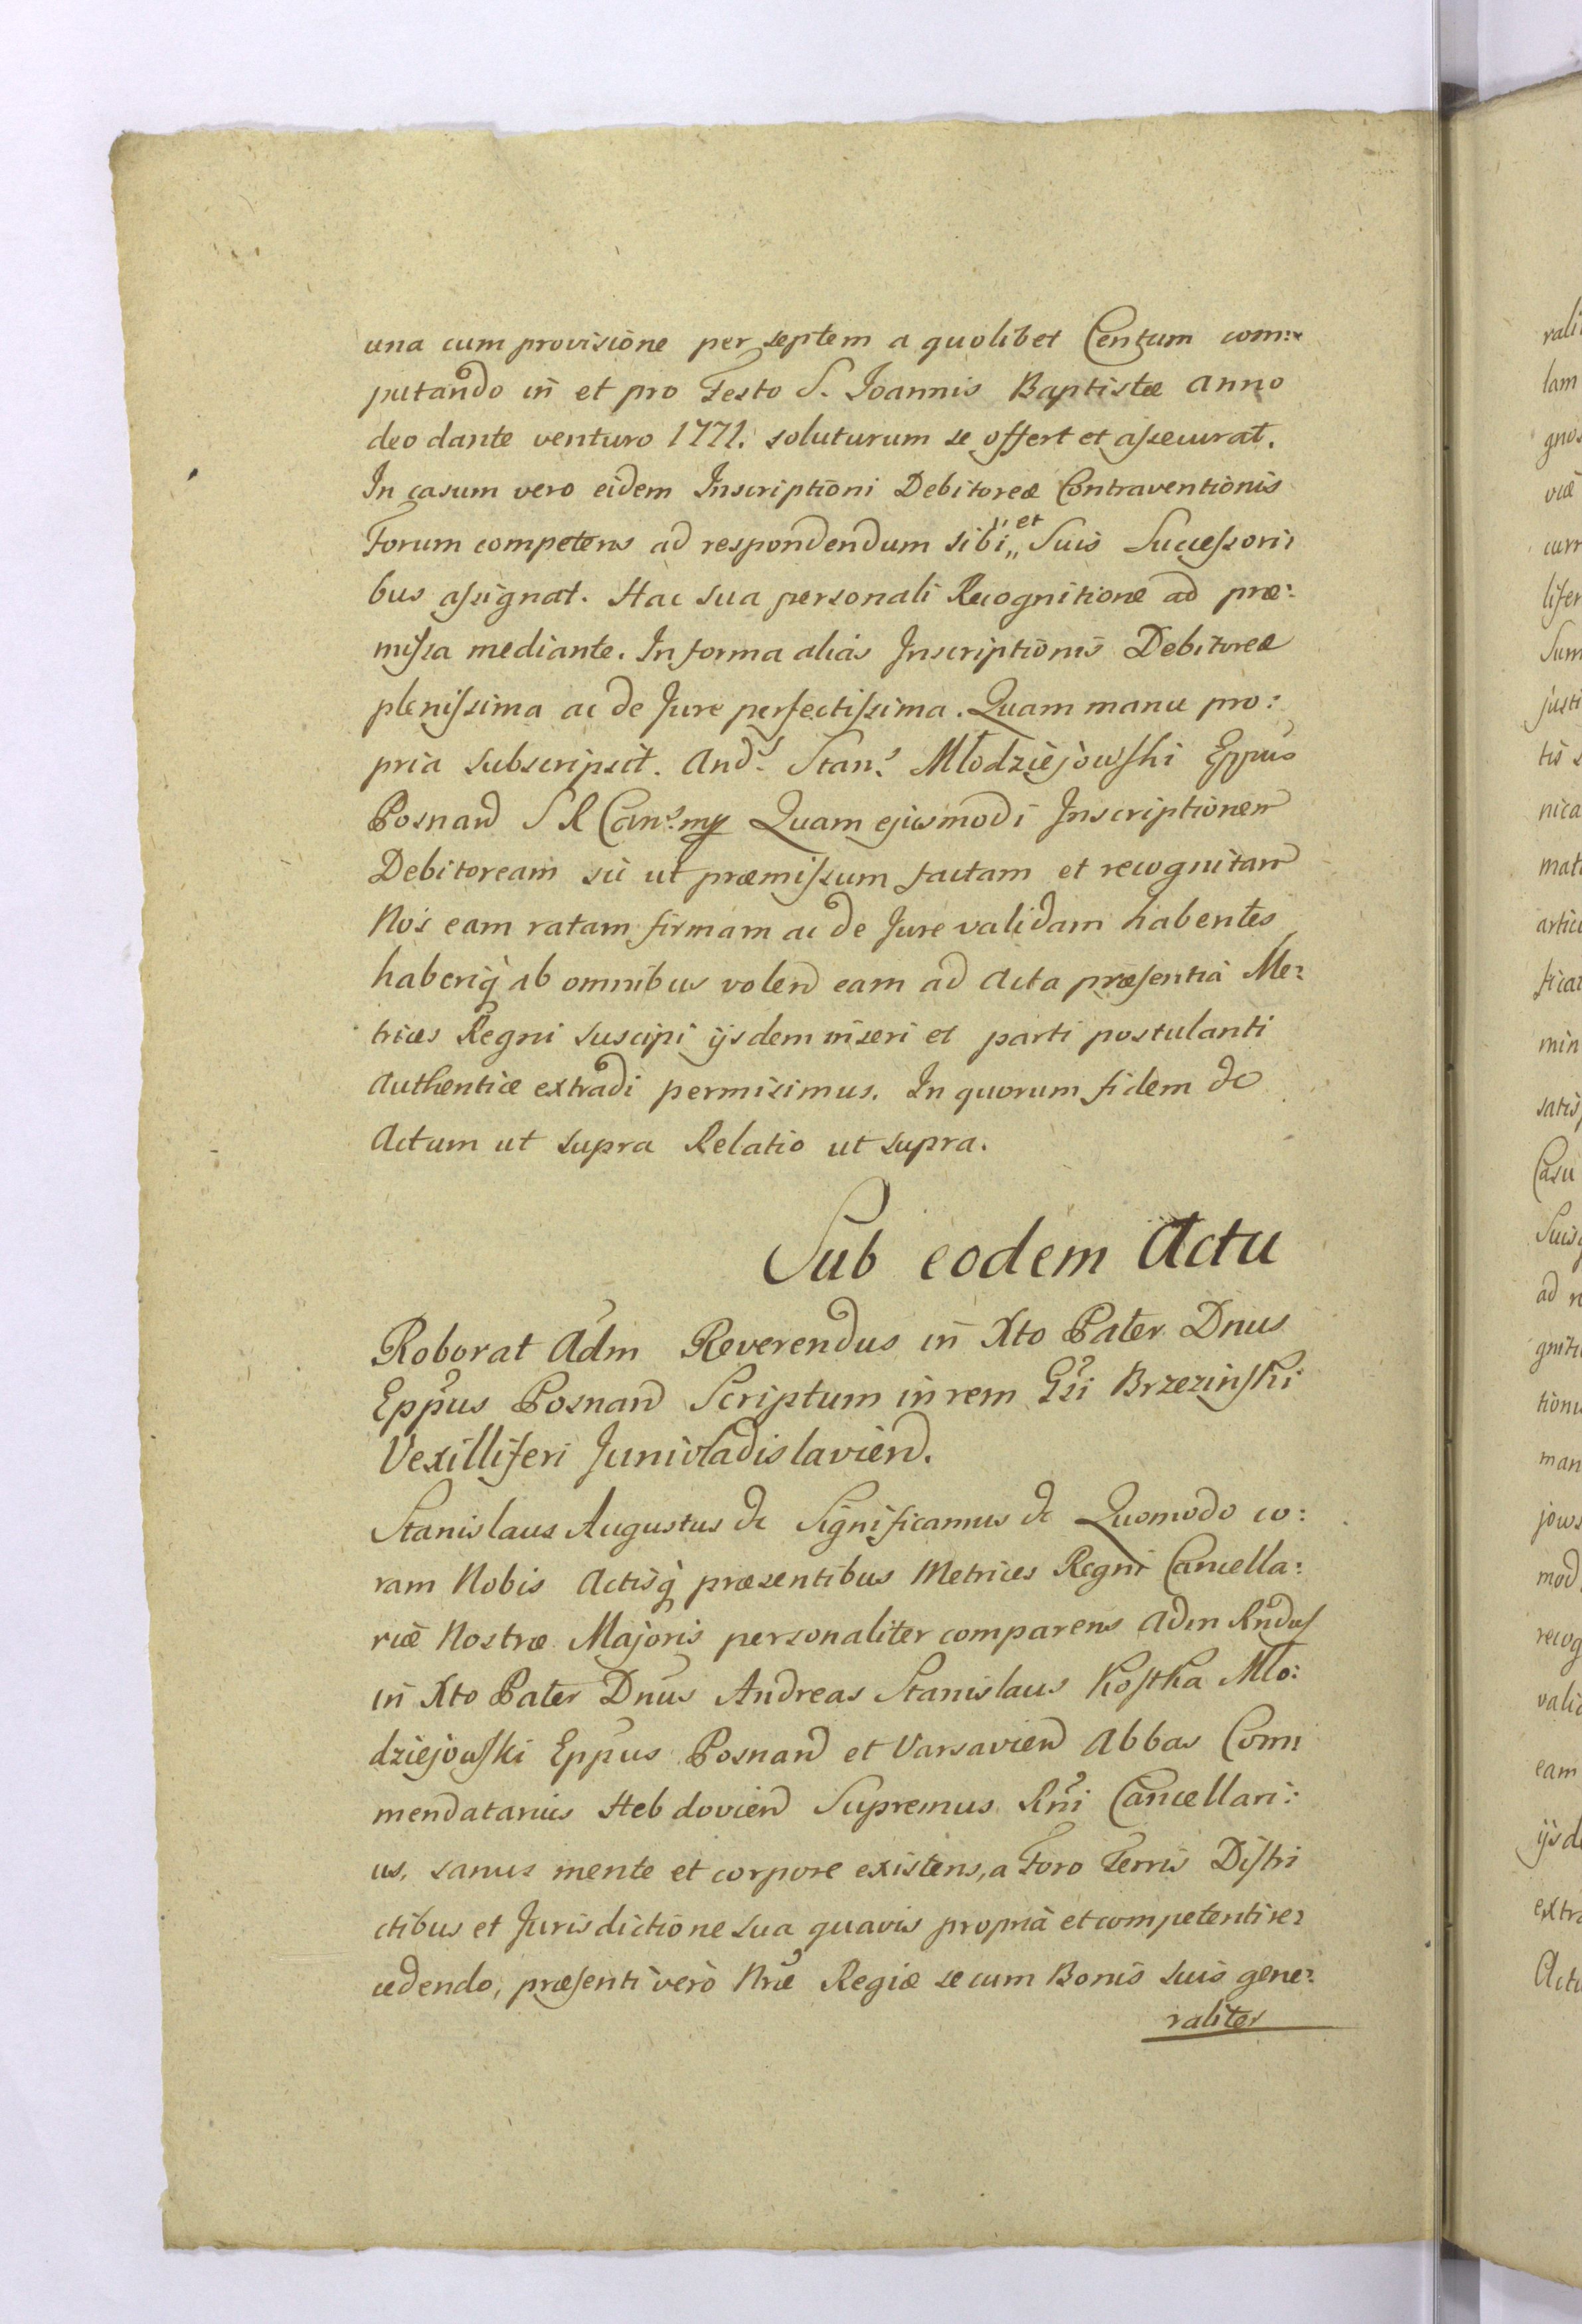 una cum provisione per septem a quolibet Centum com:
putando in et pro Festo S. Joannis Baptistæ anno
deo dante venturo 1771. soluturum se offert et assecurat.
In casum vero eidem Inscriptioni Debitoreæ Contraventionis
Forum competens ad respondendum sibi et Suis Successori:
bus assignat. Hac sua personali Recognitione ad præ:
missa mediante. In forma alias Inscriptionis Debitoreæ
plenissima ac de Jure perfectissima. Quam manu pro:
pria subscripsit. And. Stan. Młodziejowski Eppus
Posnan S R Can. mp Quam ejusmodi Inscriptionem
Debitoream sic ut præmissum factam et recognitam
Nos eam ratam firmam ac de Jure validam habentes
haberiq ab omnibus volen eam ad Acta præsentia Me:
trices Regni suscipi ijsdem inseri et parti postulanti
authenticæ extradi permisimus. In quorum fidem &c
Actum ut supra Relatio ut supra.
Sub eodem Actu
Roborat Adm Reverendus in Xto Pater Dnus
Eppus Posnan Scriptum in rem Gsi Brzezinski
Vexilliferi Junivladislavien.
Stanislaus Augustus &c Significamus &c Quomodo co:
ram Nobis Actisq præsentibus Metrices Regni Cancella:
riæ Nostræ Majoris personaliter comparens Adm Rndus
in Xto Pater Dnus Andreas Stanislaus Kostka Mło:
dziejowski Eppus Posnan et Varsavien Abbas Com:
mendatarius Hebdovien Supremus Rni Cancellari:
us, sanus mente et corpore existens, a Foro Terris Distri
ctibus et Jurisdictione sua quavis propria et competenti re:
cedendo, præsenti vero Nræ Regiæ se cum Bonis suis gene:
raliter